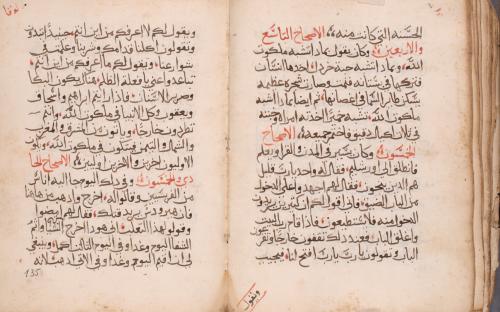 الحسنه التي كانت منه الاصحاح التاسع
والاربعين وكان يقول بماذا تشبه ملكوت
الله وبماذا اشبهه تشبه حبة خردل اخدها انسان
فتركها في بستانه فنمت وصارت شجره عظيمه
يسكن طائر السما في اغصانها ثم ايضا بماذا اشبه
ملكوت الله تشبه خميرا اخدته امراه وخبته
في ثلاث اكيال دقيق فاختمر جميعه الاصحاح
الخمسون وكان يسير في المدن والقرا ويعلم
منطلقا الى اورشليم فقال له واحد يارب قليل
هم الدين ينجون فقال لهم اجهدوا على الدخول
من الباب الضيق فاني اقول لكم ان كثيرين يريدون
الدخول منه فلا يستطيعون فاذا قام رب البيت
واغلق الباب فعند ذلك تقفون خارجا وتقرعون
الباب وتقولون يارب يارب افتح لنا فيجيب
ويقول
لوقا
ويقول لكم لا اعرفكم من اين انتم حينيذ تبتدون
وتقولون اكلنا قدامك وشربنا وعلمت في
شوارعنا ويقول لكم ما اعرفكم من اين انتم
تباعدوا عني يا فعلة الظلم هناك يكون البكا
وصرير الاسنان فاذا رايتم ابراهيم واسحاق
ويعقوب وكل الانبيا في ملكوت الله وانتم
تطردون خارجا وياتون من المشرق والمغرب
والشمال واليمن فيتكون في ملكوت الله ويكون
الاولون اخرين والاخرين اولين الاصحاح الحا
دي والخمسون وفي ذلك اليوم جا اليه اناس
من الفريسيين وقالوا له اخرج واذهب من هاهنا
فان هيرودس يريد قتلك فقال لهم امضوا
وقولوا لهدا الثعلب اني هودا اخرج الشياطين واتم
الشفا اليوم وغدا وفي اليوم الثالث اكمل وينبغي
لي ان اقيم اليوم وغدا وفي الاتي اذهب لانه
135